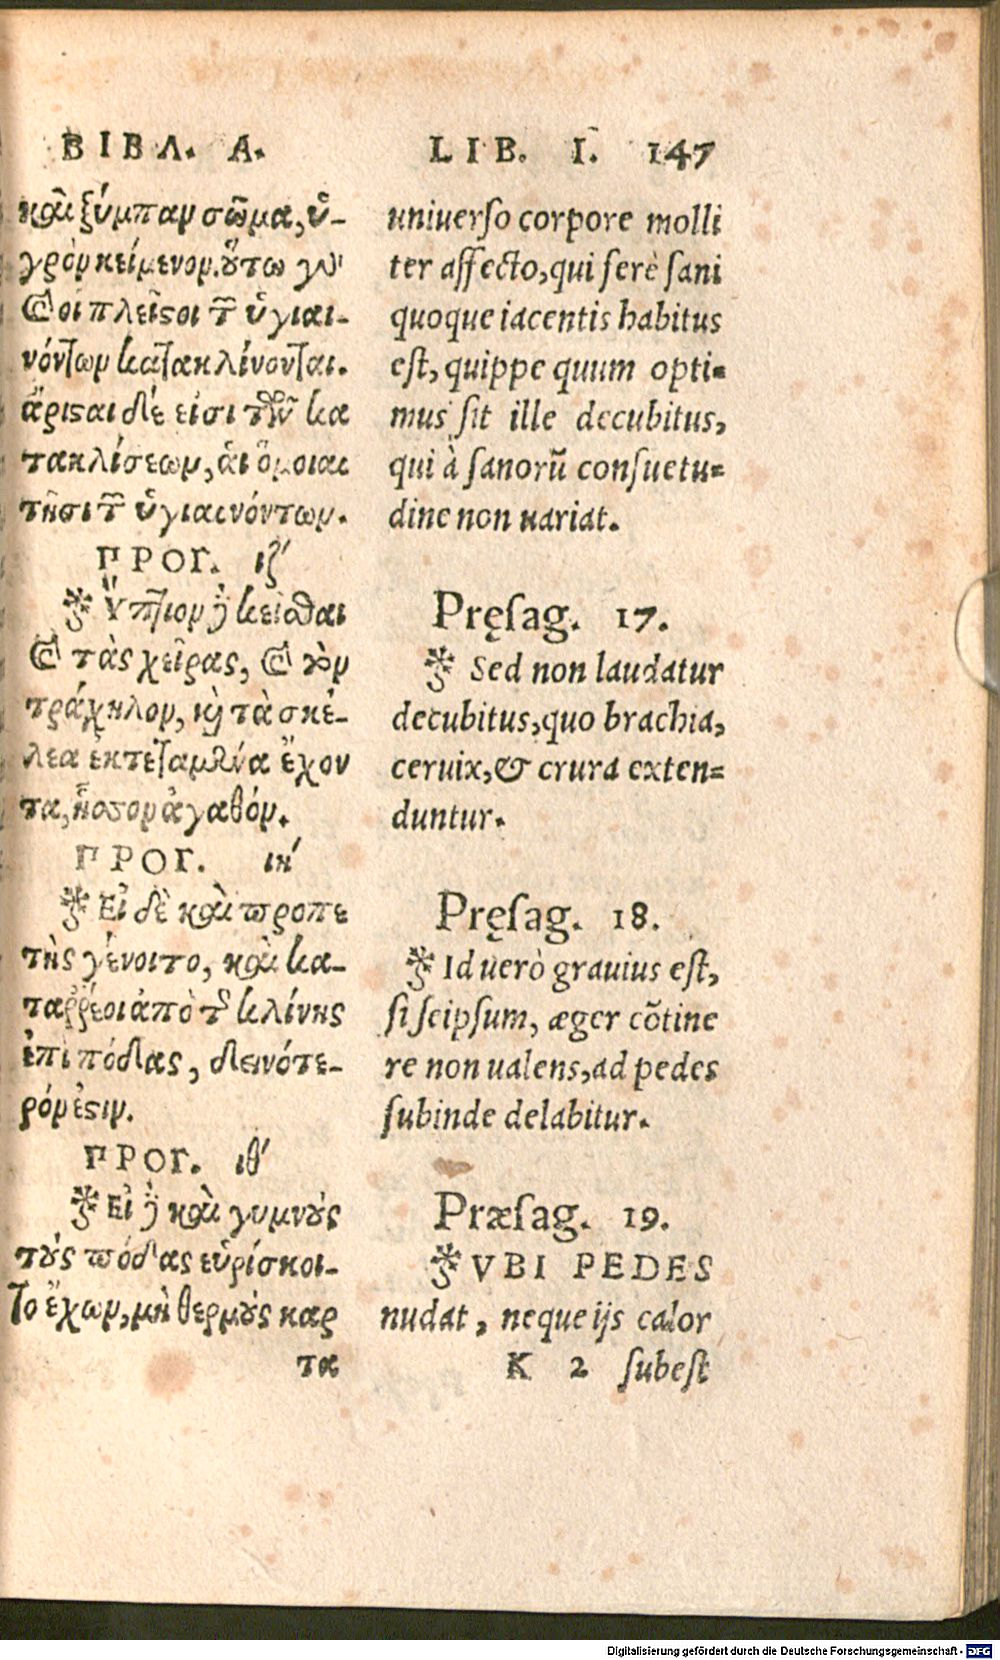 ΒΙΒΛ. Α.
καὶ ξύμπαν σῶμα, ὑ-
γρὸν κείμενον. οὕτω γὰρ
καὶ οἱ πλεῖςοι τῶν ὑγιαι-
νόντων κατακλίνονται.
ἄριςαι δέ εἰσι τῶν κα
τακλίσεων, ἁι ὅμοιαι
τῇσι τῶν ὑγιαινόντων.
ΠΡΟΓ. ιζ′
Ὕπτιον δὲ κεῖσθαι
καὶ τὰς χεῖρας, καὶ τὸν
τράχηλον, καὶ τὰ σκέ-
λεα ἐκτεταμένα ἔχον
τα, ἧσσον ἀγαθόν.
ΠΡΟΓ. ιη′
Εἰ δὲ καὶ προπε
τὴς γένοιτο, καὶ κα-
ταῤῥέοι ἀπὸ τῆς κλίνης
ἐπὶ πόδας, δεινότε-
ρόν ἐςιν.
ΠΡΟΓ. ιθ′
Εἰ δὲ καὶ γυμνοὺς
τοὺς πόδας εὑρίσκοι-
το ἔχων, μὴ θερμοὺς καρ
τα
LIB. I. 147
uniuerſo corpore molli
ter affecto, qui ferè ſani
quoque iacentis habitus
eſt, quippe quum opti-
mus ſit ille decubitus,
qui à ſanorũ conſuetu-
dine non uariat.
Pręſag. 17.
Sed non laudatur
decubitus, quo brachia,
ceruix, & crura exten-
duntur.
Pręſag. 18.
Id uerò grauius eſt,
ſi ſeipſum, æger cõtine
re non ualens, ad pedes
ſubinde delabitur.
Præſag. 19.
VBI PEDES
nudat, neque ijs calor
K 2 ſubeſt
Digitalisierung gefördert durch die Deutsche Forschungsgemeinschaft - DFG